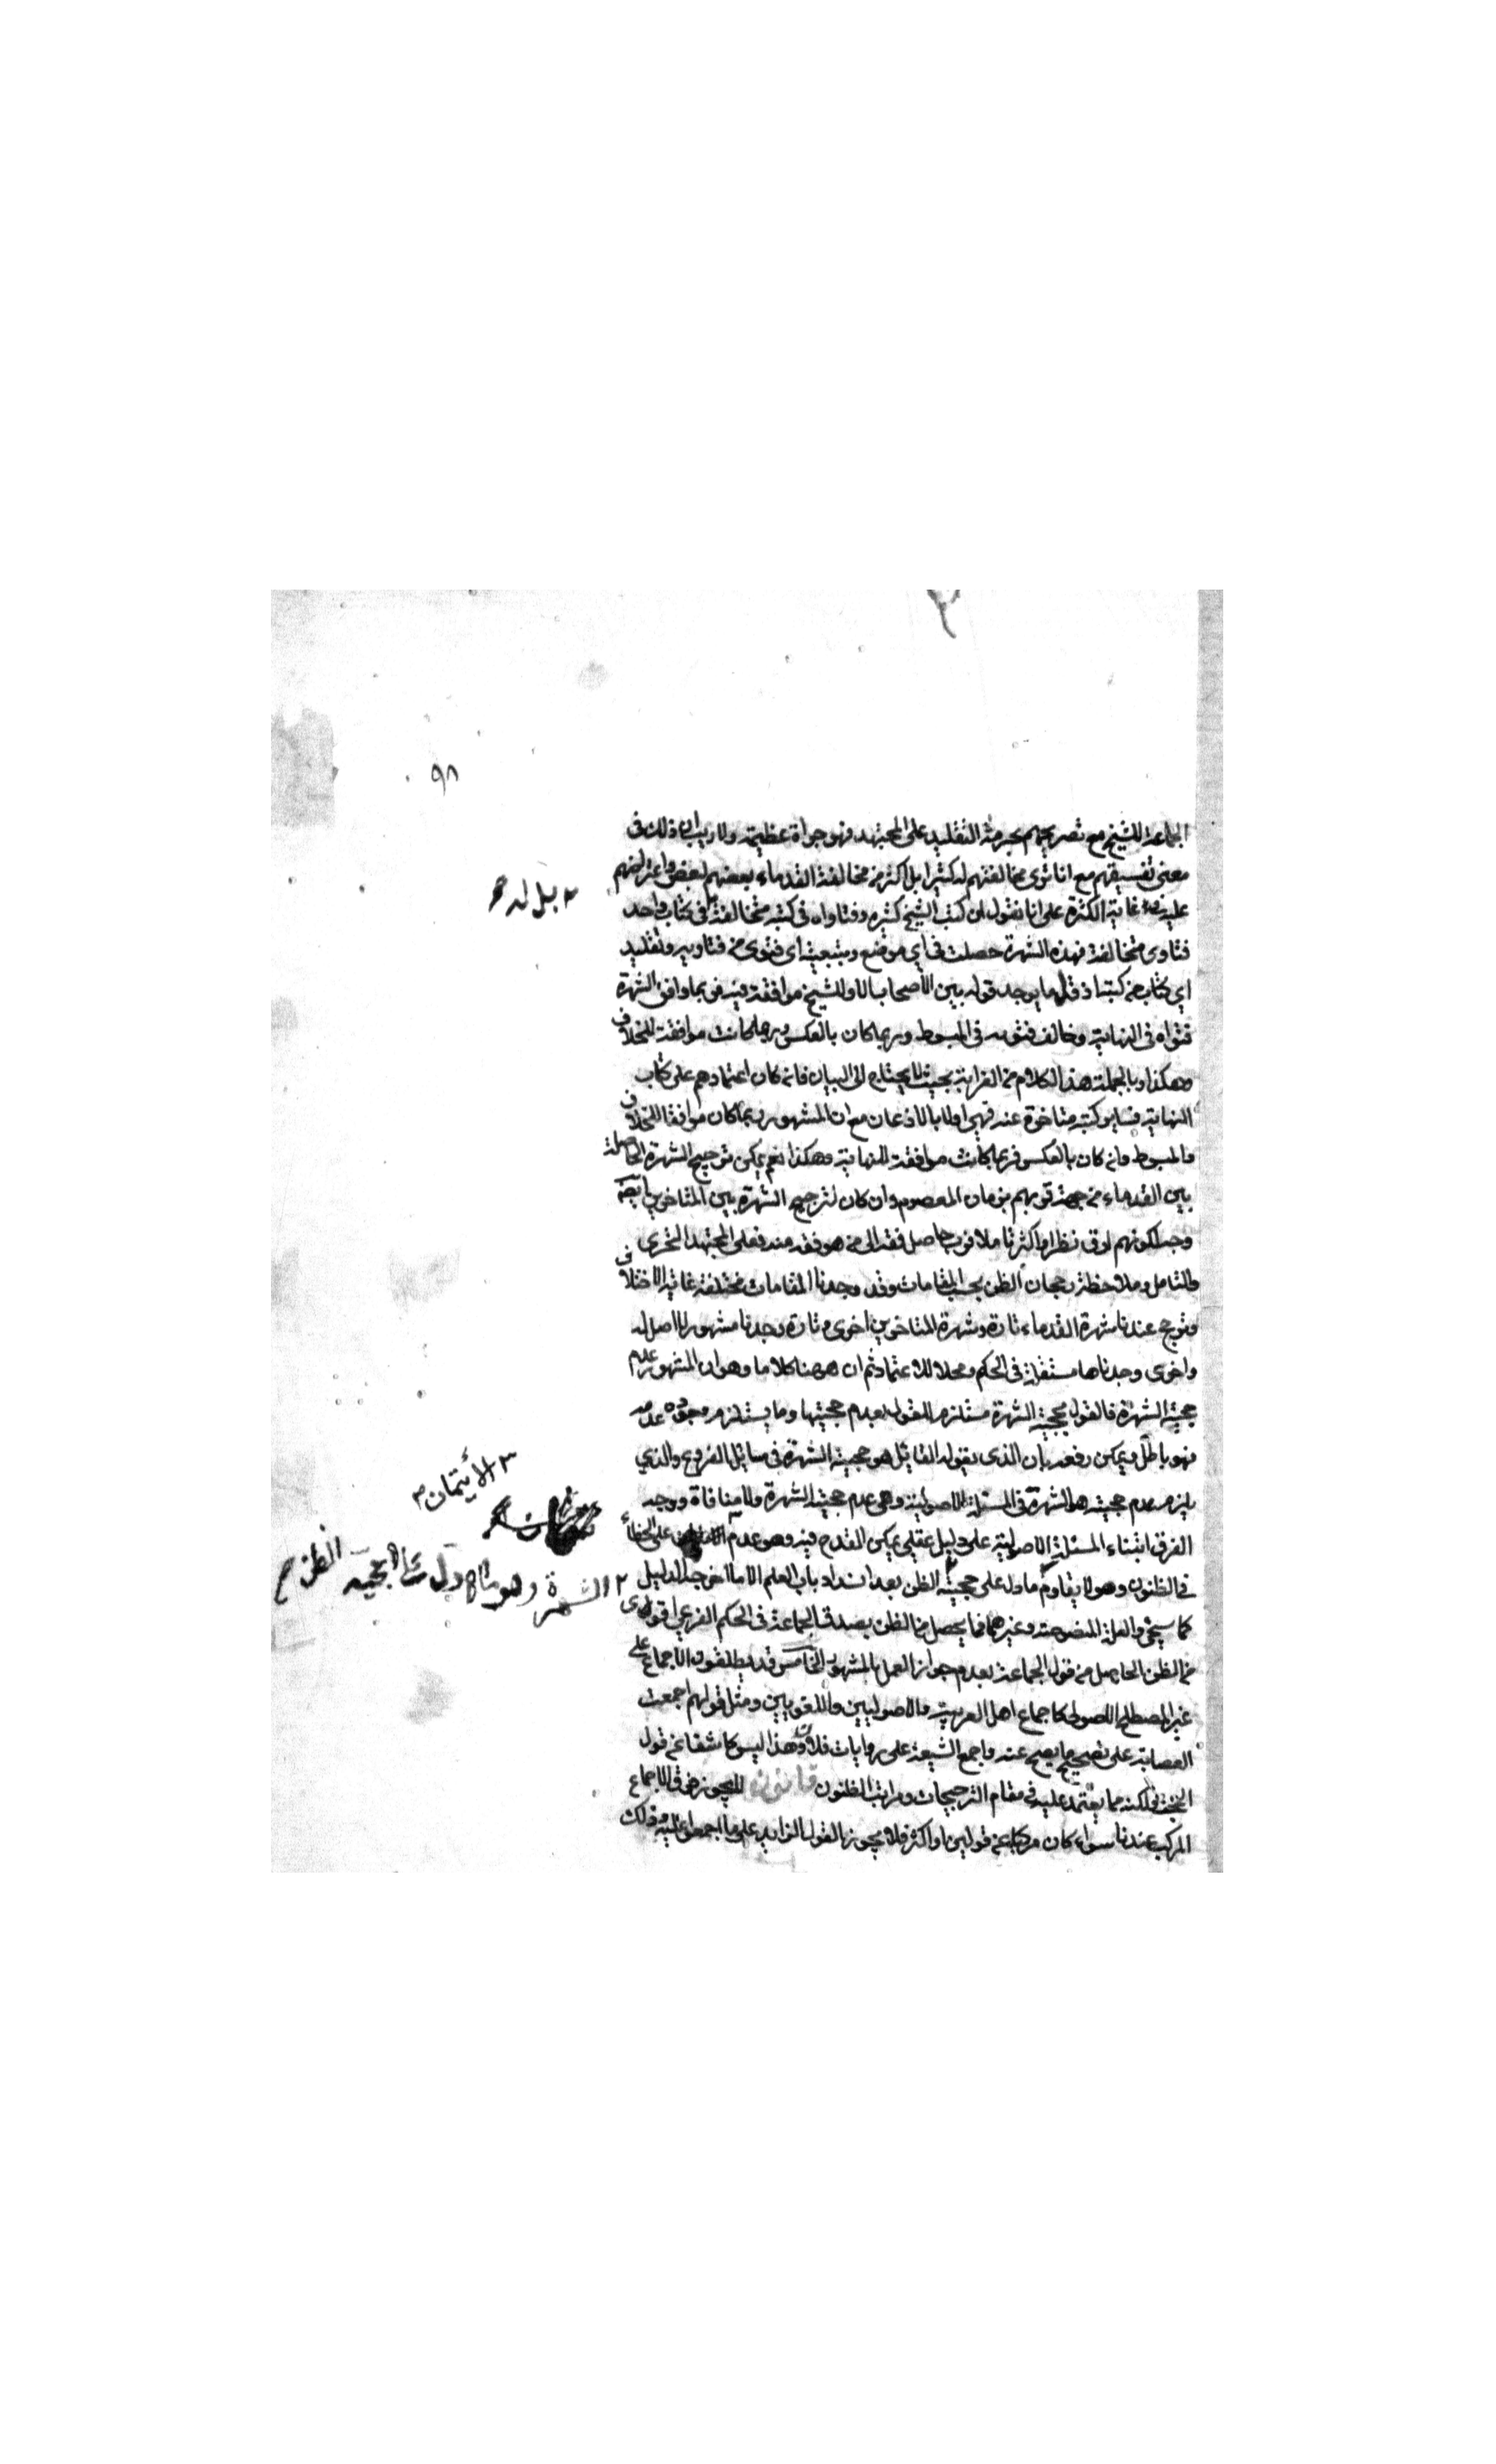 ٩٨
الجماعة للشيخ مع تصريحهم بحرمة التقليد على المجتهد فهو جرأة عظيمة ولا ريب ان ذلك في
معنى تفسيقهم مع انا نرى مخالفتهم له كثيرا بل اكثر من مخالفة القدماء بعضهم لبعض واعتراضهم
عليه في غاية الكثرة على انا نقول ان كتب الشيخ كثيرة وفتاواه في كتبه متخالفة بل في كتاب واحد
فتاوى متخالفة فهذه الشهرة حصلت في اي موضع وبتبعية اى فتوى من فتاويه وتقليد
اي كتاب من كتبه اذ قلما يوجد قول بين الاصحاب الا وللشيخ موافقة فيه فربما وافق الشهرة
فتواه في النهاية وخالف فتواه في المبسوط وربما كان بالعكس وربما كانت موافقة للخلاف
وهكذا وبالجملة هذا الكلام من الغرابة بحيث لا يحتاج الى البيان فان كان اعتمادهم على كتاب
النهاية فساير كتبه متاخرة عنه فهي اولى بالاذعان مع ان المشهور ربما كان موافقا للخلاف
والمبسوط وان كان بالعكس فربما كانت موافقة للنهاية وهكذا نعم يمكن ترجيح الشهرة الحاصلة
بين القدماء من جهة قربهم بزمان المعصوم وان كان لترجيح الشهرة بين المتاخرين ايضا
وجه لكونهم ادق نظرا واكثر تاملا فرب حامل فقه الى من هو افقه منه فعلى المجتهد التحري
والتامل وملاحظة رجحان الظن بحسب المقامات وقد وجدنا المقامات مختلفة غاية الاختلاف
وترجح عندنا شهرة القدماء تارة وشهرة المتاخرين اخرى وتارة وجدنا مشهورا لا اصل له
واخرى وجدناها مستقلة في الحكم ومحلا للاعتماد ثم ان ههنا كلاما وهو ان المشهور عدم
حجية الشهرة فالقول بحجية الشهرة مستلزم للقول بعدم حجيتها وما يستلزم وجوده عدمه
فهو باطل ويمكن رفعه بان الذى يقوله القائل هو حجية الشهرة في مسائل الفروع والذي
يلزم عدم حجيته هو الشهرة في المسئلة الاصولية وهي عدم حجية الشهرة ولا منافاة ووجه
الفرق ابتناء المسئلة الاصولية على دليل عقلي يمكن القدح فيه وهو عدم على الخطاء
في الظنون وهو لا يقاوم ما دل على حجية الظن بعد انسداد باب العلم الا ما اخرجه الدليل
كما سيجئ والعلة المنصوصة وغيرهما فما يحصل من الظن بصدق الجماعة في الحكم الفرعي اقوى
من الظن الحاصل من قول الجماعة بعدم جواز العمل بالمشهور الخامس قد يطلقون الاجماع على
غير المصطلح الاصولى كاجماع اهل العربية والاصوليين واللغويين ومثل قولهم اجمعت
العصابة على تصحيح ما يصح عنه واجمع الشيعة على روايات فلان وهذا ليس كاشفا عن قول
الحجة لكنه مما يعتمد عليه في مقام الترجيحات ومراتب الظنون قانون لا يجوز خرق الاجماع
المركب عندنا سواء كان مركبا عن قولين او اكثر فلا يجوز القول الزايد على ما اجمعوا عليه وذلك
٢ بل له
٣ الائتمان
٢ الشهرة وهو
الظن